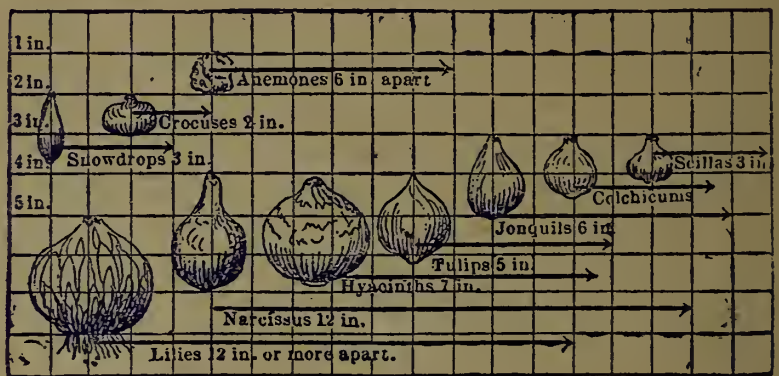 1 in.
2 in.
3 in.
4 in.
5 in.
Anemones 6 in apart
Crocuses 2 in.
Snowdrops 3 in.
Scillas 3 in
Colchicums
Jonquils 6 in.
Tulips 5 in.
Hyacinths 7 in.
Narcissus 12 in.
Lilies 12 in. or more apart.